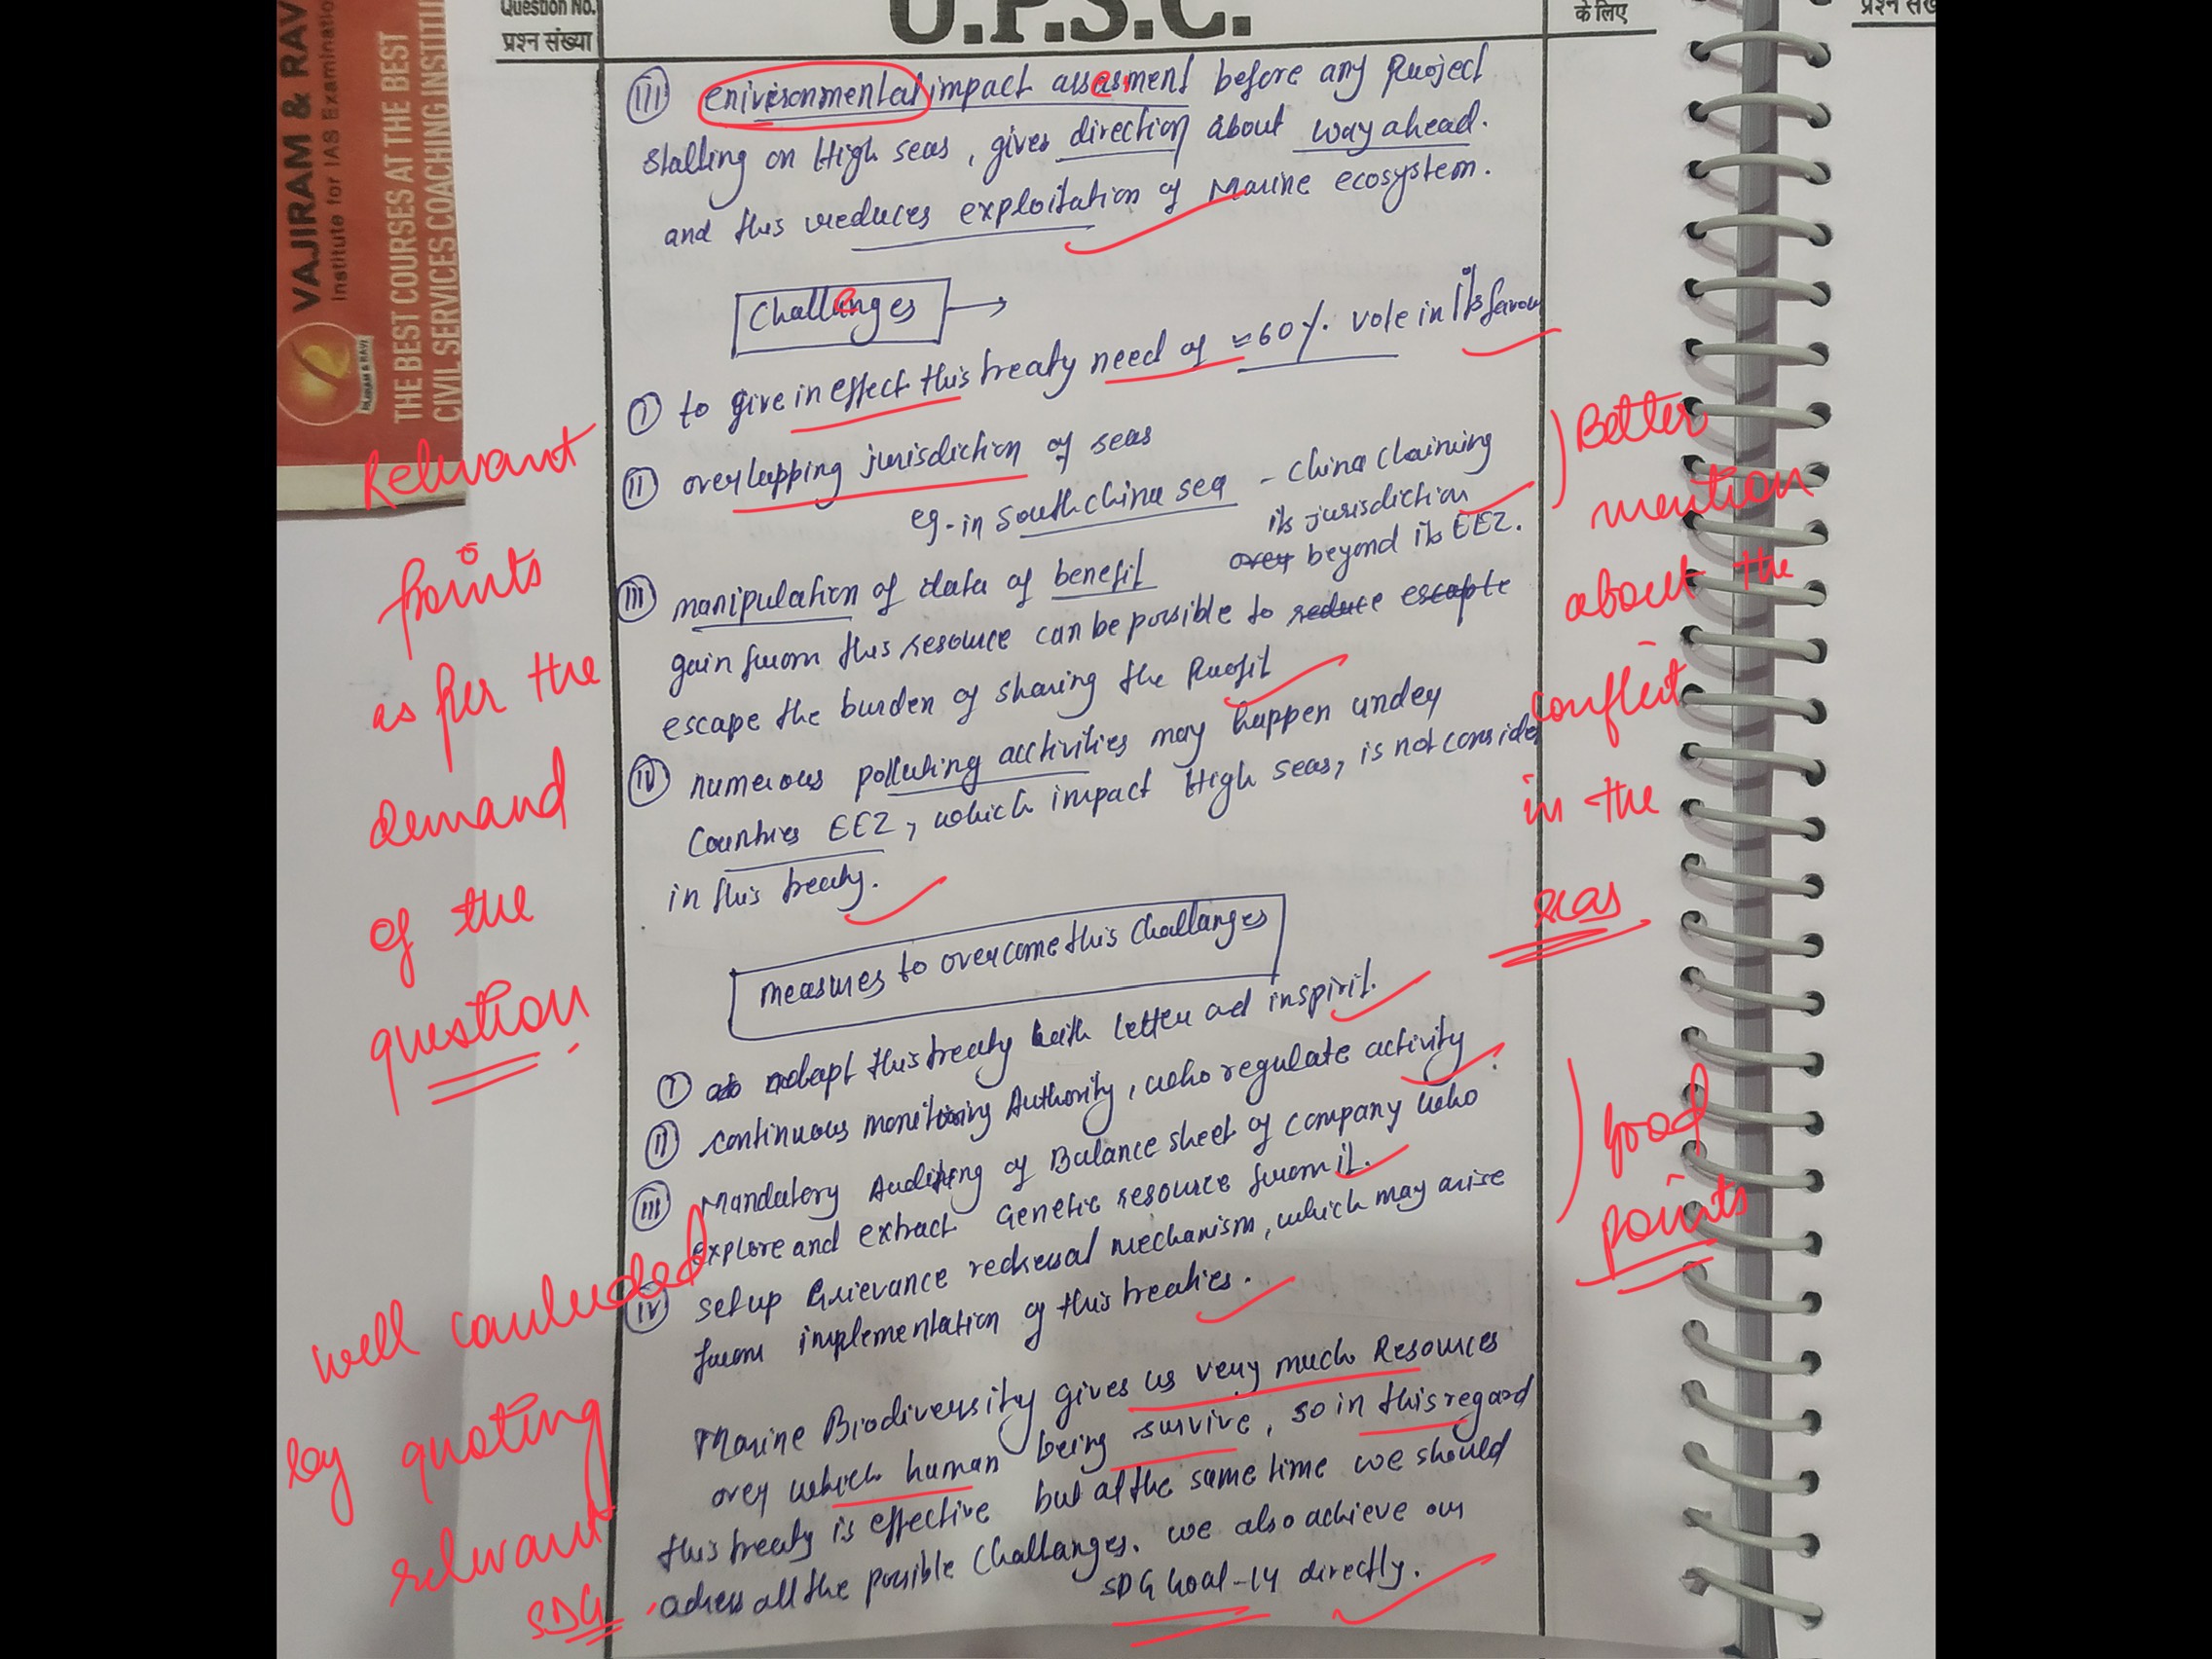 Question No.
प्रश्न संख्या
U.P.S.C.
के लिए
प्रश्न सं
VAJIRAM & RAV
Institute for IAS Examinatio
THE BEST COURSES AT THE BEST
CIVIL SERVICES COACHING INSTITU
VAJIRAM & RAVI
III enivisonmental impact assesment before any Project
stalling on High seas, gives direction about way ahead.
and this reduces exploitation of Marine ecosystem.
Challenges →
I to give in effect this treaty need of ≈60%. vote in its favour
II overlapping jurisdiction of seas
eg-in South china sea - China claiming
its jurisdiction
over beyond its EEZ.
III manipulation of data of benefit
gain from this resource can be possible to reduce escapte
escape the burden of sharing the Profit
IV numerous polluting acctivities may happen under
Countries EEZ, which impact High seas, is not consider
in this treaty.
measures to overcome this Challanges
I ado adapt this treaty with letter ad inspirit.
II continuous monitoring Authority, who regulate activity.
III Mandatory Auditing of Balance sheet of company who
explore and extract Genetic resource from it.
IV setup Grievance redressal mechanism, which may arise
from implementation of this treaties.
Marine Biodiversity gives us very much Resources
over which human being survive, so in this regard
this treaty is effective but at the same time we should
adress all the possible Challanges. we also achieve our
SDG Goal-14 directly.
Relevant
points
as per the
demand
of the
question.
Better
mention
about the
conflict
in the
seas
Good
points
well concluded
by quoting
relevant
SDG.